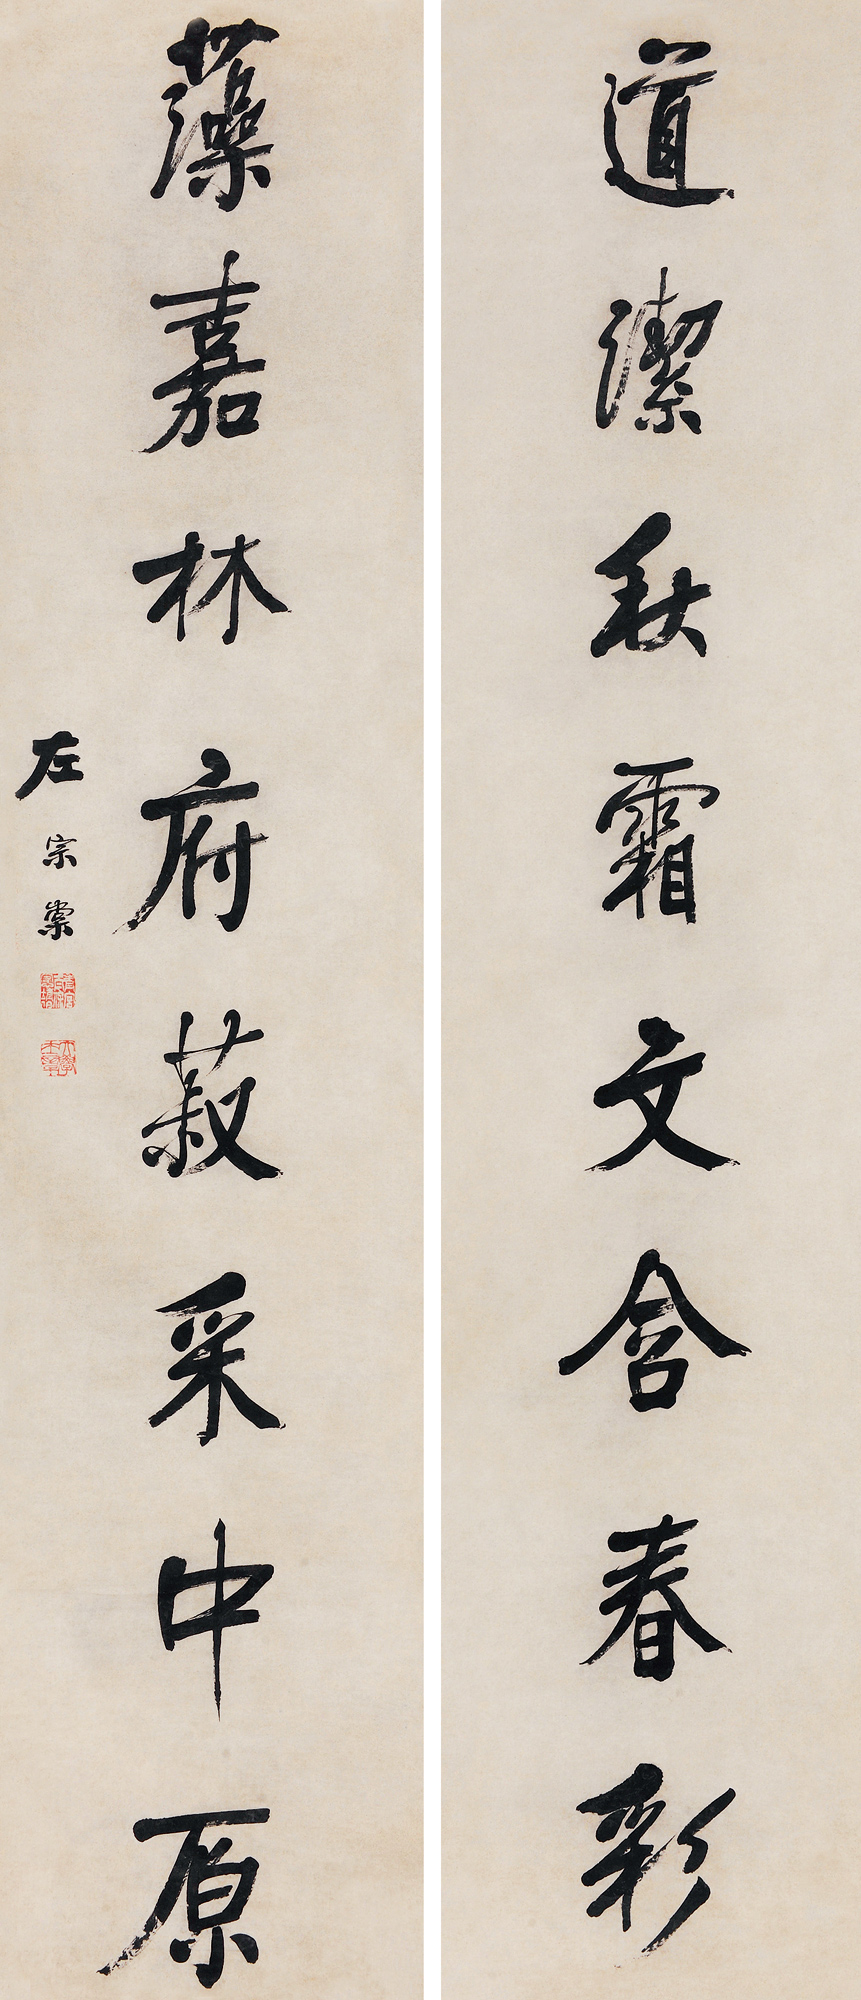 道潔秋霜文含春彩
藻嘉林府菽采中原
左宗棠